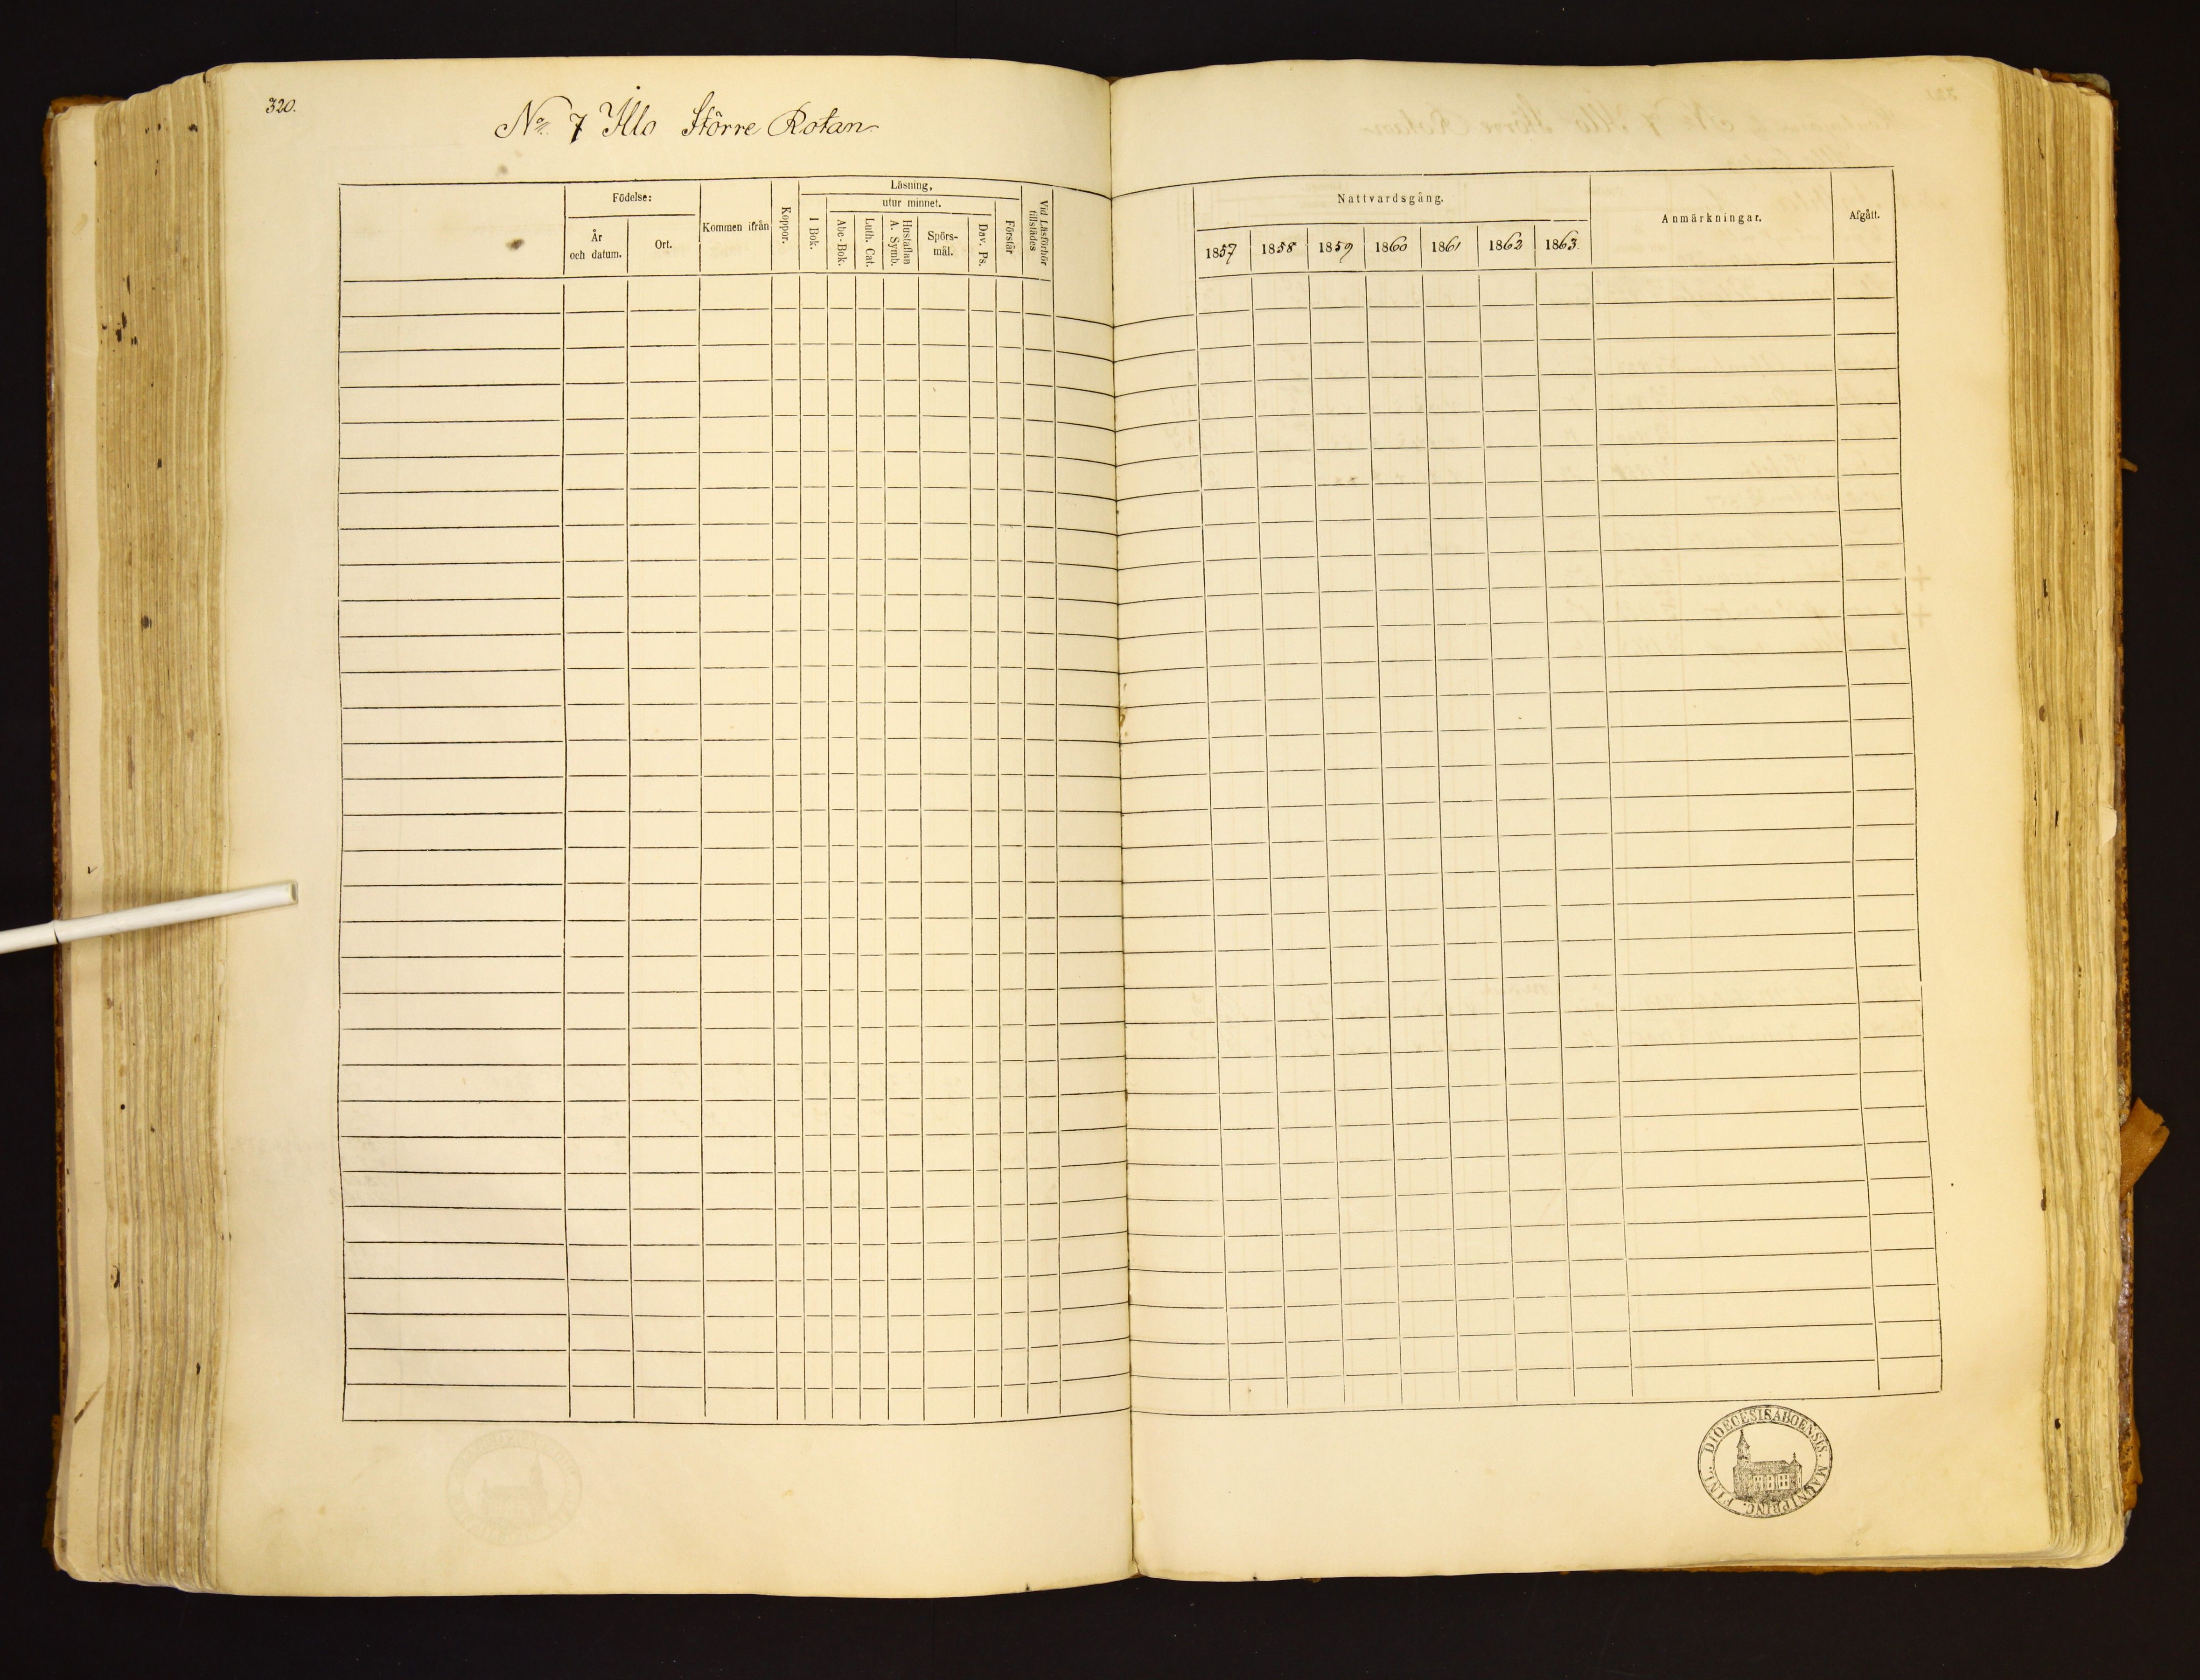 320.
No 7 Illo Större Rotan
Födelse:
År och datum.
Ort.
Kommen ifrån
Koppor.
Läsning,
utur minnet.
I Bok.
Abc-Bok.
Luth. Cat.
Hustaflan
A. Symb.
Spörs-
mål.
Dav. Ps.
Förstår
Vid Läsförhör
tillstädes
Nattvardsgång.
1857 1858 1859 1860 1861 1862 1863
Anmärkningar.
Afgått.
DIOECESIS ABOENSIS. MAGNI PRINC. FINL.